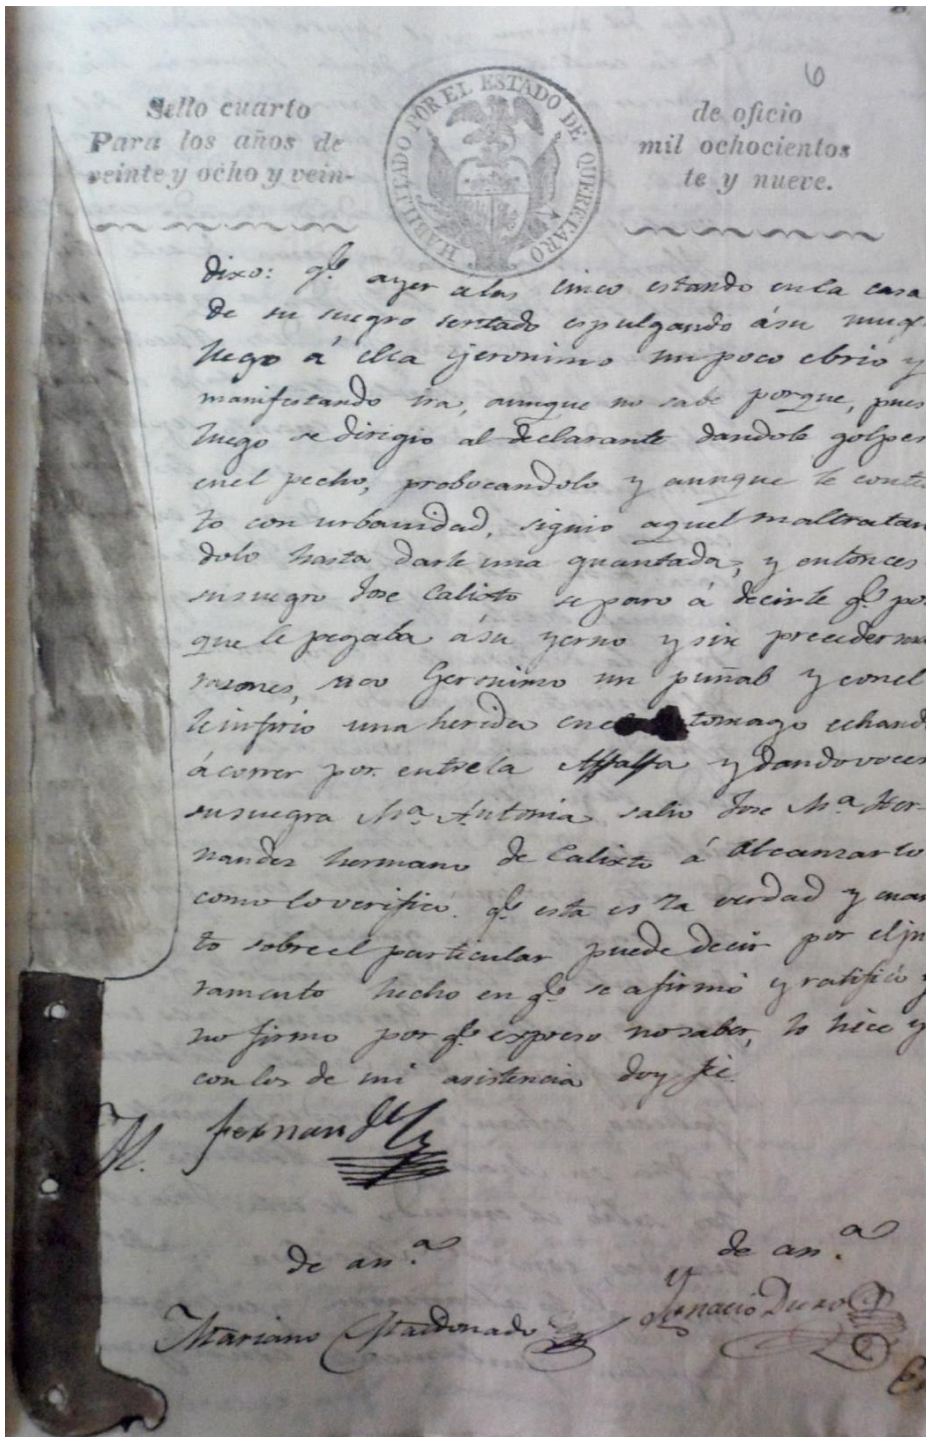 6
Sello cuarto
Para los años de
veinte y ocho y vein-
HABILITADO POR EL ESTADO DE QUERETARO
de oficio
mil ochocientos
te y nueve.
dixo: qe. ayer alas cinco estando enla casa
de su suegro sentado espulgando ásu muge
llego á ella Geronimo un poco ebrio y
manifestando ira, aunque no sabe porque, pues
luego se dirigio al declarante dandole golpes
enel pecho, probocandolo y aunque le contes
to con urbanidad, siguio aquel maltratan
dolo hasta darle una guantada, y entonces
susuegro Jose Calixto separo á decirle qe. por
que le pegaba ásu yerno y sin preceder mas
rasones, saco Geronimo un puñal y conel
leinfirio una herida en tomago echando
ácorrer por entrela Alfalfa y dandovoces
susuegra Ma. Antonia salio Jose Ma. Her-
nandes hermano de Calixto á Alcansarlo
como loverifico. qe. esta es la verdad y cuan
to sobreel particular puede decir por elju
ramento hecho en qe. se afirmó y ratificó y
no firmo por qe. expreso nosaber, lo hice y
conlos de mi asistencia doy fe.
M. Fernandez
de an.a
de an.a
Mariano Maldonado
Ygnacio Duro